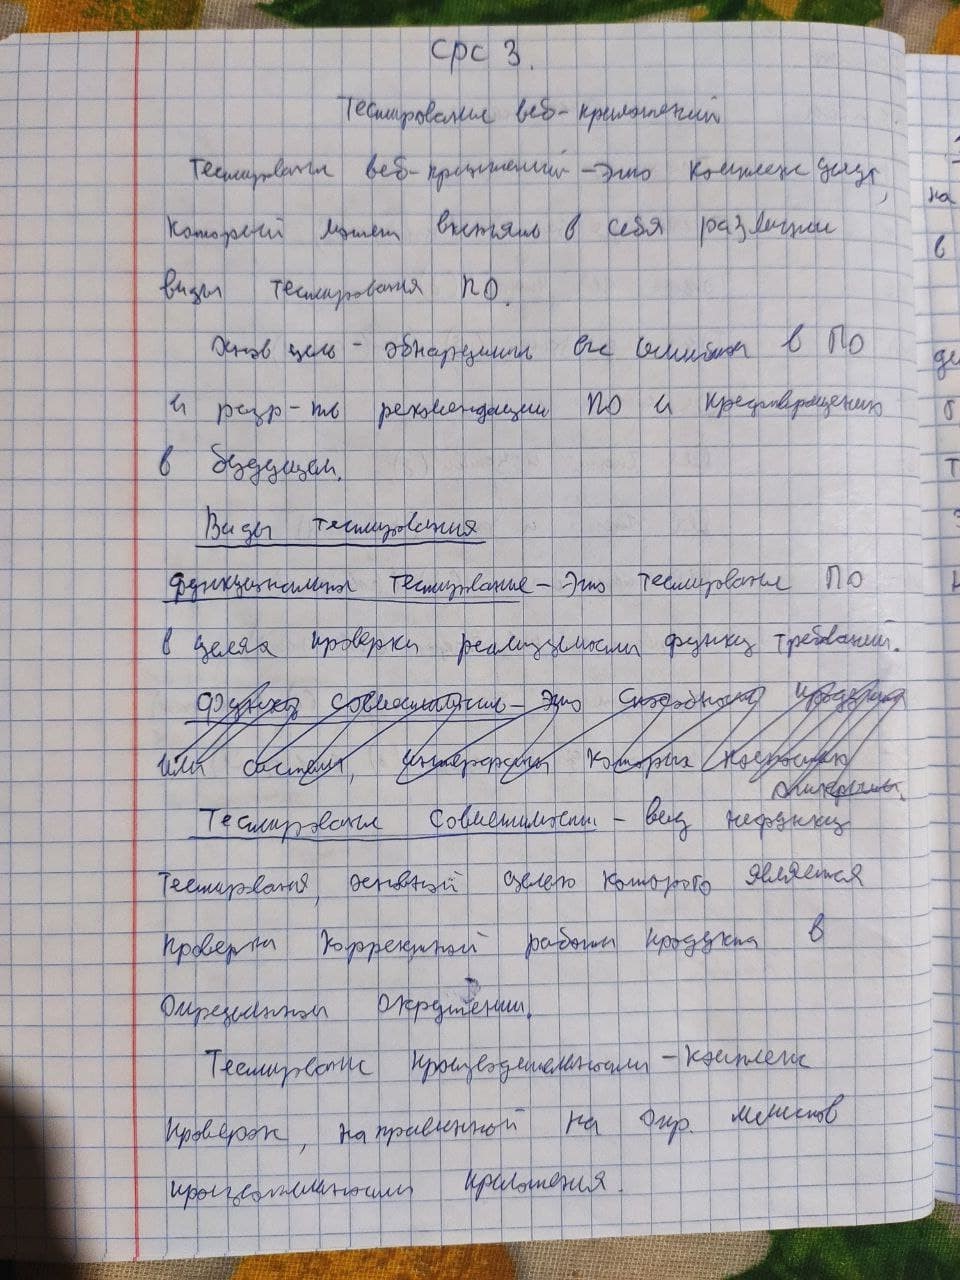 СРС 3.
Тестирование веб-приложений
Тестирование веб-приложений - это комплекс услуг,
который может включать в себя различные
виды тестирования ПО.
Основ цель - обнаружить все ошибки в ПО
и разр-ть рекомендации ПО и предотвращению
в будущем.
Виды тестирования
Функциональное тестирование - это тестирование ПО
в целях проверки реализуемости функц требований.
Функц совместимость - это способность продукта
или системы, интерфейсы которых полностью
открыты.
Тестирование совместимости - вид нефункц
тестирования, основной целью которого является
проверка корректной работы продукта в
определённом окружении.
Тестирование производительности - комплекс
проверок, направленной на опр.
производительности приложения.
на
в